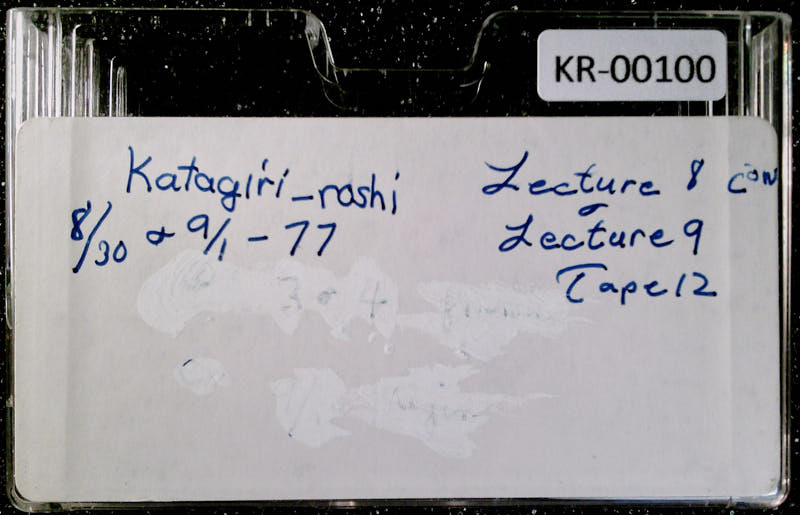 KR-00100
Katagiri-roshi
8/30 & 9/1 - 77
Lecture 8 con
&
Lecture 9
Tape 12
3 & 4